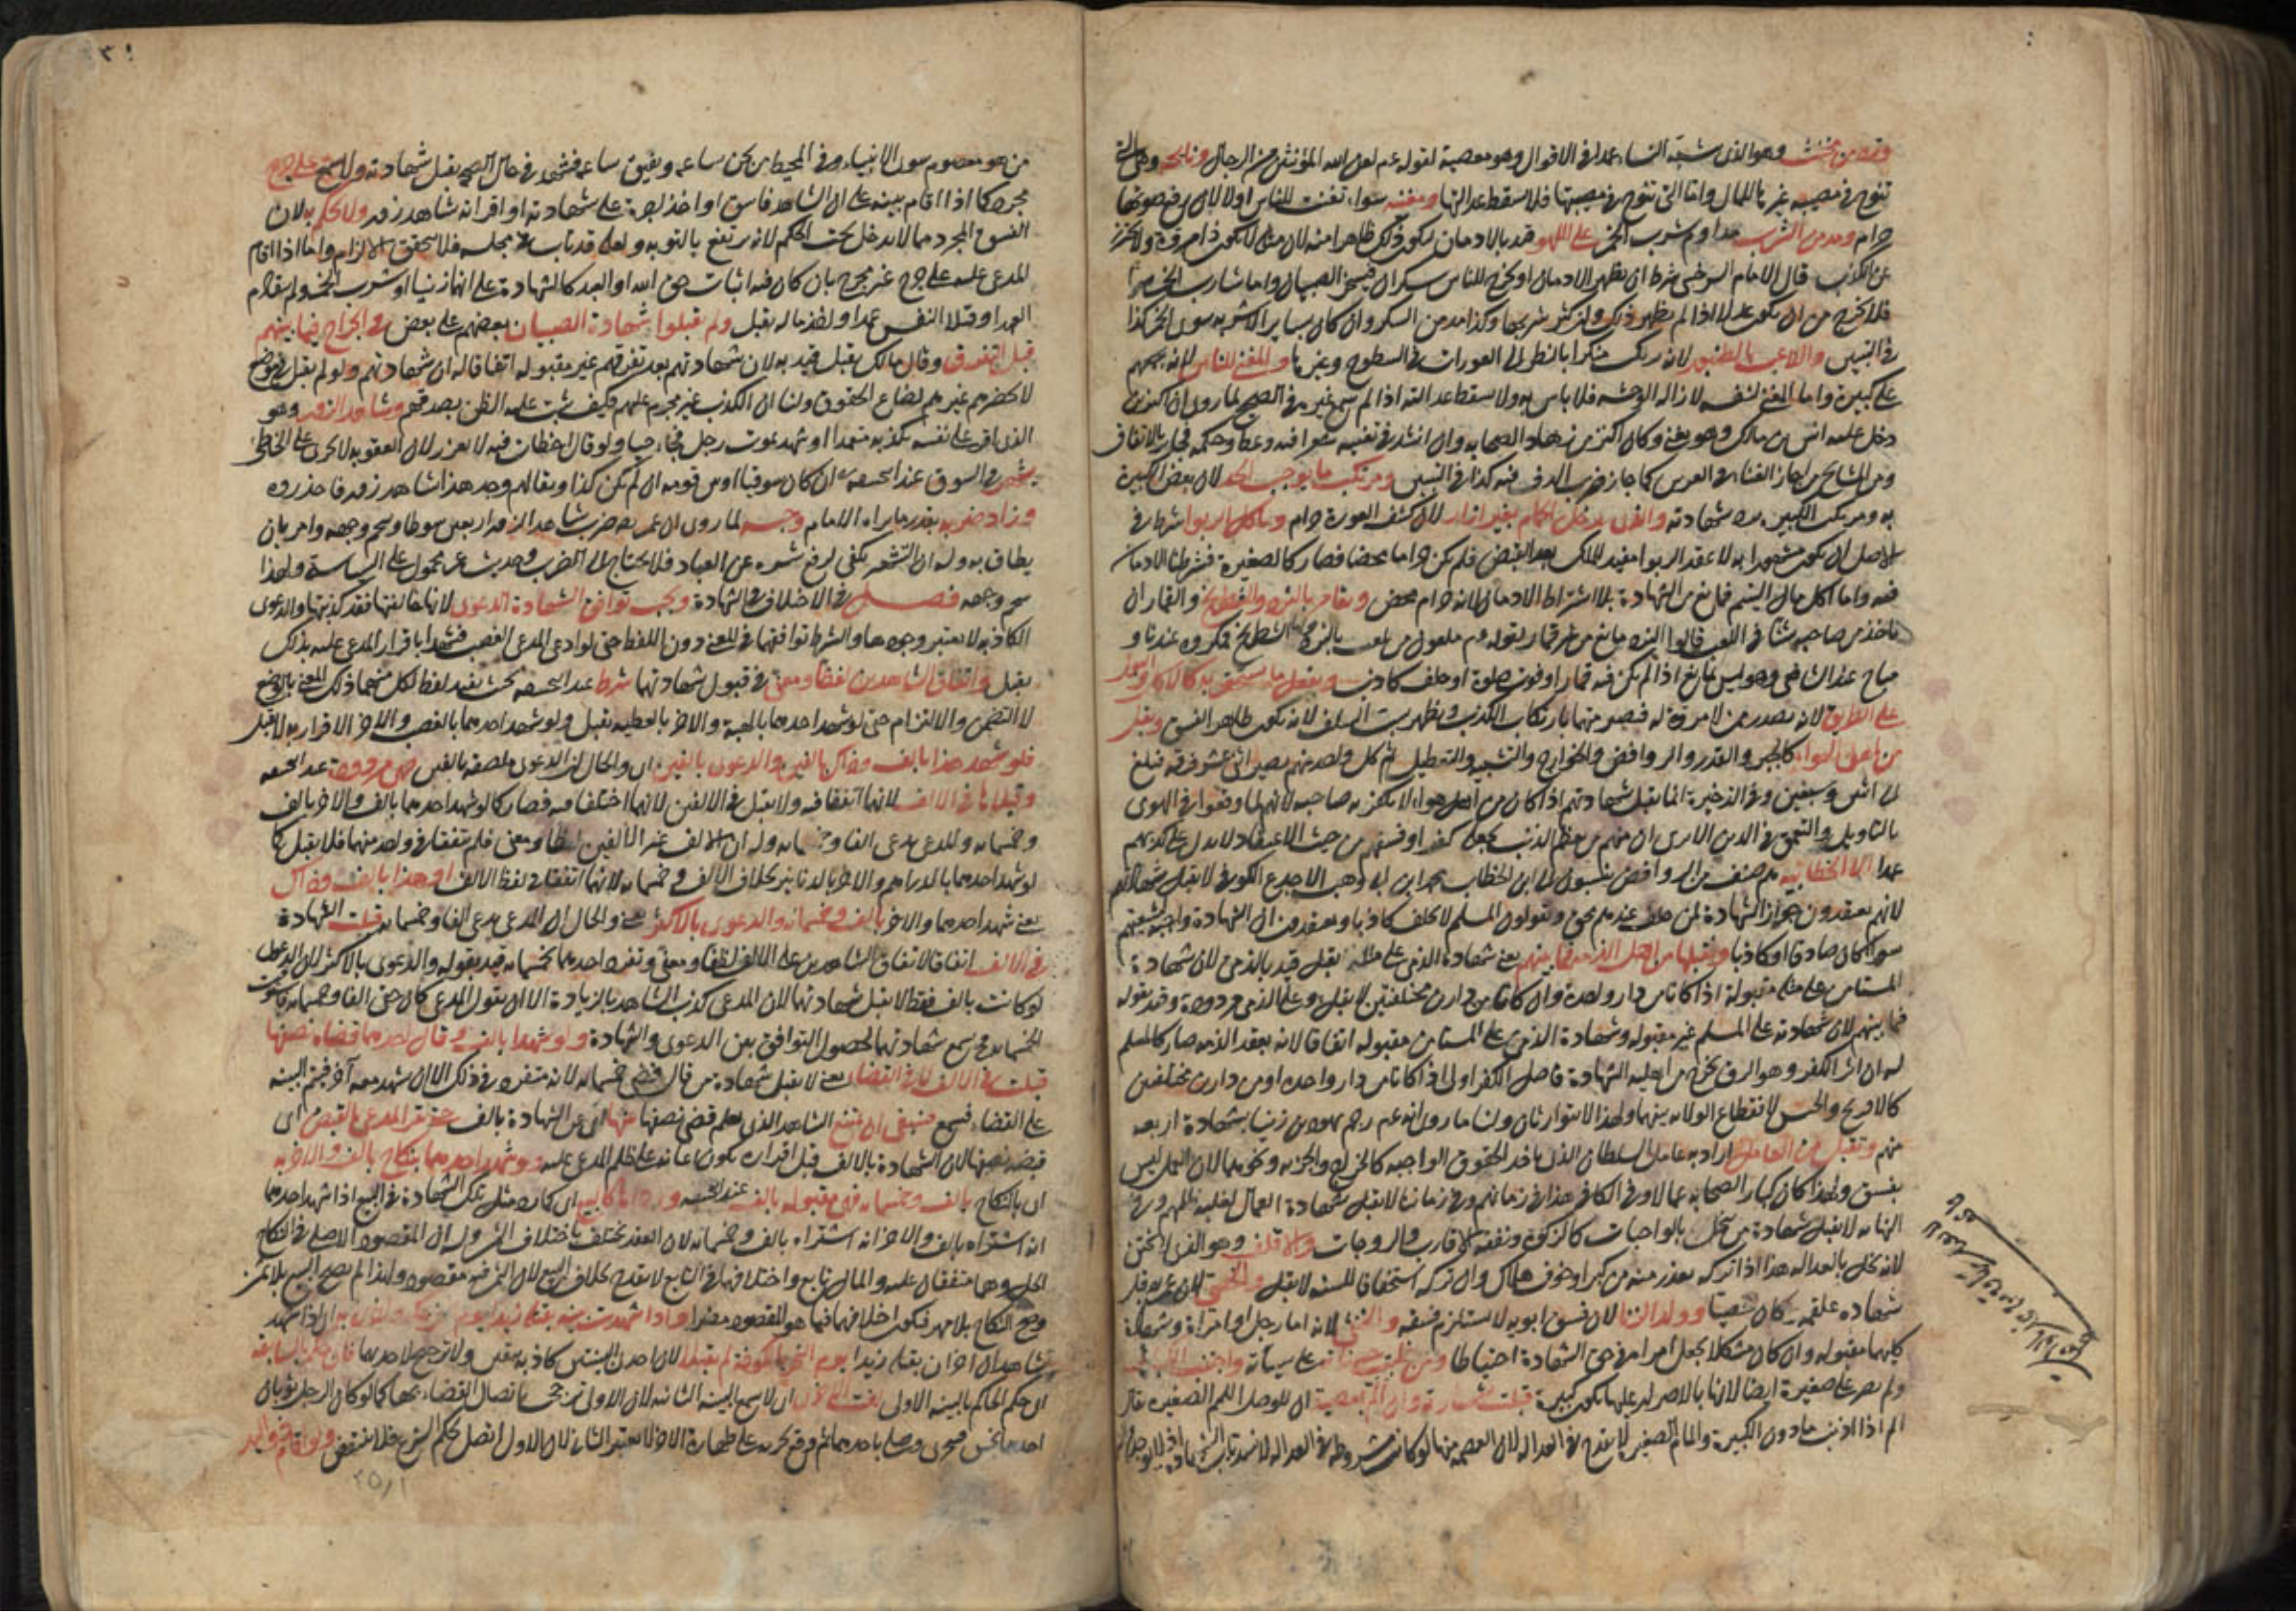 وترد من مخنث وهو الذى يتشبه النساء عمدا فى الاقوال وهو معصية لقوله عم لعن الله المؤنثين من الرجال ونايحة وهى التى
تنوح فى مصيبة غيرها للمال واما التى تنوح فى مصيبتها فلا يسقط عدالتها ومغنية سواء تغنت للناس او لا لان رفع صوتها
حرام ومدمن الشرب مداوم شرب الخمر على اللهو قيد بالادمان ليكون ذلك ظاهرا منه لان مثله لا يكون ذا مروة ولا يحترز
عن الكذب قال الامام السرخسى شرط ان يظهر الادمان او يخرج للناس سكران فيسخر الصبيان واما شارب الخمر سرا
فلا يخرج من ان يكون عدلا اذا لم يظهر ذلك وان كثر شربها وكذا مدمن السكر وان كان بساير الاشربة سوى الخمر كذا
فى التبيين واللاعب بالطنبور لانه يرتكب منكرا بالنظر الى العورات فى السطوح وغيرها والمغنى للناس لانه يجمعهم
على كبيرة واما المغنى لنفسه لازالة الوحشة فلا باس به ولا يسقط عدالته اذا لم يسمع غيره فى الصحيح لما روى ان
دخل عليه انس بن مالك وهو يغنى وكان اكثر من زهاد الصحابة وان انشد فى تغنيه شعرا فيه وعظ وحكمة فجايز بالاتفاق
ومن المشايخ من اجاز الغناء فى العرس كما جاز ضرب الدف فيه كذا فى التبيين ومرتكب ما يوجب الحد لان بعض الكبيرة
به ومرتكب الكبيرة يرد شهادته والذى يدخل الحمام بغير ازار لان كشف العورة حرام وياكل الربوا شرط فى
الاصل ان يكون مشهورا به لان عقد الربوا مفيد للملك بعد القبض فلم يكن حراما محضا فصار كالصغيرة فشرط الادمان
فيه واما اكل مال اليتيم فمانع من الشهادة بلا اشتراط الادمان لانه حرام محض ويقامر بالنرد والشطرنج والقمار ان
ياخذ من صاحبه شيئا فى اللعب قالوا النرد مانع من غير قمار لقوله عم ملعون من يلعب بالنرد واما الشطرنج فمكروه عندنا و
مباح عند الشافعى وهو ليس بمانع اذا لم يكن فيه قمار او فوت صلوة او حلف كاذب ويفعل ما يستخف به كالاكل والبول
على الطريق لانه يصدر ممن لا مروة له فيصير متهما بارتكاب الكذب ويظهر سب السلف لانه يكون ظاهر الفسق وتقبل
من اهل الهواء كالجبر والقدر والروافض والخوارج والتشبيه والتعطيل ثم كل واحد منهم يصير اثنى عشر فرقة فتبلغ
الى اثنين وسبعين وفى الذخيرة انما يقبل شهادتهم اذا كان من اهل هواء لا يكفر به صاحبه لانهم انما وقعوا فى الهوى
بالتاويل والتعمق فى الدين الا يرى ان منهم من يعظم الذنب يجعله كفرا وفسقهم من حيث الاعتقاد لا يدل على كذبهم
عمدا الا الخطابية هم صنف من الروافض ينسبون الى ابن الخطاب محمد ابن ابى وهب الاجدع الكوفى لا يقبل شهادتهم
لانهم يعتقدون جواز الشهادة لمن حلف عندهم ويقولون المسلم لا يحلف كاذبا ويعتقدون ان الشهادة واجبة لشيعتهم
سواء كان صادقا او كاذبا ويقبلها من اهل الذمة فيما بينهم يعنى شهادة الذمى على مثله يقبل قيد بالذمى لان شهادة
المستامن على مثله مقبولة اذا كانا من دار واحدة وان كانا من دارين مختلفتين لا يقبل وعلى الذمى مردودة وقيد بقوله
فيما بينهم لان شهادته على المسلم غير مقبولة وشهادة الذمى على المستامن مقبولة اتفاقا لانه بعقد الذمة صار كالمسلم
له ان اثر الكفر وهو الرق يخرج من اهلية الشهادة فاصل الكفر اولى اذا كانا من دار واحدة او من دارين مختلفين
كالافرنج والحبش لانقطاع الولاية بينهما ولهذا لا يتوارثان ولنا ما روى انه عم رجم يهوديين زنيا بشهادة اربعة
منهم وتقبل من العامل اراد به عامل السلطان الذى ياخذ الحقوق الواجبة كالخراج والجزية ونحوهما لان العمل ليس
بفسق ولهذا كان كبار الصحابة عمالا وفى الكافى هذا فى زمانهم وفى زماننا لا يقبل شهادة العمال لغلبة ظلمهم وفى
النهاية لا يقبل شهادة من بخل بالواجبات كالزكوة ونفقة الاقارب والزوجات والاقلف وهو الذى لا يختن
لانه لا يخل بالعدالة هذا اذا تركه بعذر منه من كبر او خوف هلاك وان تركه استخفافا للسنة لا يقبل والخصى لان عمر قبل
شهادة علقمة كان خصيا وولد الزنا لان فسق ابويه لا يستلزم فسقه والخنثى لانه اما رجل او امراة وشهادة
كليهما مقبولة وان كان مشكلا يجعل امراة فى حق الشهادة احتياطا ومن غلبت حسناته على سيئاته واجتنب الكبائر
ولم يصر على صغيرة ايضا لانها بالاصرار عليها تكون كبيرة قبلت شهادته وان الم بمعصية ان للوصل اللمم الصغيرة يقال
الم اذا اذنب ما دون الكبيرة والمام الصغيرة لا يقدح فى العدالة لان العصمة منها لو كانت مشروطة فى العدالة لانسد باب الشهادة اذ لا يوجد
من هو معصوم سوى الانبياء وفى المحيط من يجن ساعة ويفيق ساعة فشهد فى حال الصحة يقبل شهادته ولا يسمع على جرح
مجرد كما اذا اقام بينة على ان الشاهد فاسق او اخذ اجرة على شهادته او اقر انه شاهد زور ولا يحكم به لان
الفسق المجرد مما لا يدخل تحت الحكم لانه يرتفع بالتوبة ولعله قد تاب فى مجلسه فلا يتحقق الالزام واما اذا اقام
المدعى عليه على جرح غير مجرد بان كان فيه اثبات حق الله او العبد كالشهادة على انهما زنيا او شرب الخمر ولم يتقادم
العهد او قتلا النفس عمدا واخذ ماله يقبل ولم يقبلوا شهادة الصبيان بعضهم على بعض فى الجراح فيما بينهم
قبل التفرق وقال مالك يقبل قيد به لان شهادتهم بعد تفرقهم غير مقبولة اتفاقا له ان شهادتهم لو لم يقبل فى موضع
لا يحضرهم غيرهم لضاع الحقوق ولنا ان الكذب غير محرم عليهم فكيف يثبت غلبة الظن بصدقهم وشاهد الزور وهو
الذى اقر على نفسه بكذبه متعمدا او شهد بموت رجل فجاء حيا ولو قال اخطات فيه لا يعزر لان العقوبة لا تجرى على الخاطى
يشهر فى السوق عند ابى حنيفة ان كان سوقيا او بين قومه ان لم يكن كذا ويقال لهم وجد هذا شاهد زور فاحذروه
وزاد ضربه بقدر ما يراه الامام وحبسه لما روى ان عمر رضه ضرب شاهد الزور اربعين سوطا وسحم وجهه وامر بان
يطاف به وله ان التشهير يكفى لرفع شره عن العباد فلا يحتاج الى الضرب وحديث عمر محمول على السياسة ولهذا
سحم وجهه فصل فى الاختلاف فى الشهادة ويجب توافق الشهادة الدعوى لانها خالفتها فقد كذبتها والدعوى
الكاذبة لا يعتبر وجودها والشرط توافقهما فى المعنى دون اللفظ حتى لو ادعى المدعى الغصب فشهدا باقرار المدعى عليه بذلك
يقبل واتفاق الشاهدين لفظا ومعنى فى قبول شهادتهما شرط عند ابى حنيفة بحيث يفيد لفظ لكل منهما ذلك المعنى بالوضع
لا التضمن والالتزام حتى لو شهد احدهما بالهبة والاخر بالعطية يقبل ولو شهد احدهما بالغصب والاخر الاقرار به لا يقبل
فلو شهد هذا بالف وذاك بالفين والدعوى بالفين اى والحال ان الدعوى ملصقة بالفين فهى مردودة عند ابى حنيفة
وقبلاها فى الالف لانهما اتفقا فيه ولا يقبل فى الالفين لانهما اختلفا فيه فصار كما لو شهد احدهما بالف والاخر بالف
وخمسمائة والمدعى يدعى الفا وخمسمائة وله ان الالف غير الالفين لفظا ومعنى فلم يتفقا فى واحد منهما فلا يقبل كما
لو شهد احدهما بالدراهم والاخر بالدنانير بخلاف الالف وخمسمائة لانهما اتفقا فى لفظ الالف او هذا بالف وذاك
يعنى شهد احدهما والاخر بالف وخمسمائة والدعوى بالاكثر يعنى والحال ان المدعى يدعى الفا وخمسمائة قبلت الشهادة
فى الالف اتفاقا لاتفاق الشاهدين على الالف لفظا ومعنى وتفرد احدهما بخمسمائة قيد بقوله والدعوى بالاكثر لان الدعوى
لو كانت بالف فقط لا يقبل شهادتهما لان المدعى كذب الشاهد بالزيادة الا ان يقول المدعى كان حقى الفا وخمسمائة فاستوفيت
الخمسمائة فح يسمع شهادتهما لحصول التوافق بين الدعوى والشهادة ولو شهدا بالف وقال احدهما قضاه نصفها
قبلت فى الالف لا فى القضاء يعنى لا يقبل شهادة من قال قضى خمسمائة لانه متفرد فى ذلك الا ان شهد معه آخر فيتم البينة
على القضاء فيسمع فينبغى ان يمتنع الشاهد الذى يعلم قضى نصفها منها اى عن الشهادة بالف حتى يقر المدعى بالقبض اى
قبضه نصفها لان الشهادة بالالف قبل اقراره يكون اعانة على ظلم المدعى عليه ولو شهد احدهما بنكاح بالف والاخر به
اى بالنكاح بالف وخمسمائة فهى مقبولة بالف عند ابى حنيفة ورداها كالبيع اى كما رد مثل تلك الشهادة فى البيع اذا شهد احدهما
انه اشتراه بالف والاخر انه اشتراه بالف وخمسمائة لان العقد يختلف باختلاف الثمن وله ان المقصود الاصلى فى النكاح
الحل وهما متفقان عليه والمال تابع واختلافهما فى التابع لا يقدح بخلاف البيع لان الثمن فيه مقصود ولهذا لم يصح البيع بلا ثمن
وصح النكاح بلا مهر فيكون اختلافهما فيما هو المقصود مضرا واذا شهدت بينة بقتله زيدا يوم النحر بمكة واخرى به اى اذا شهد
شاهدان اخران بقتله زيدا يوم النحر بالكوفة لم يقبلا لان احدى البينتين كاذبة بيقين ولا ترجيح لاحدهما فان حكم بالسابقة
اى حكم الحاكم بالبينة الاولى لغت الاخرى اى لا يسمع البينة الثانية لان الاولى ترجحت باتصال القضاء بها كما لو كان لرجل ثوبان
احدهما نجس فتحرى وصلى باحدهما ثم وقع تحريه على طهارة الاخر لا يعتبر الثانى لان الاول اتصل بحكم الشرع فلا ينتقض